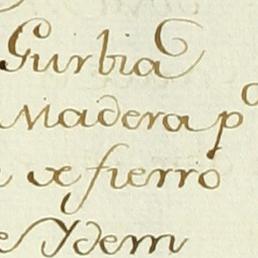 Gurbia
Madera p.º
de fierro
Ydem